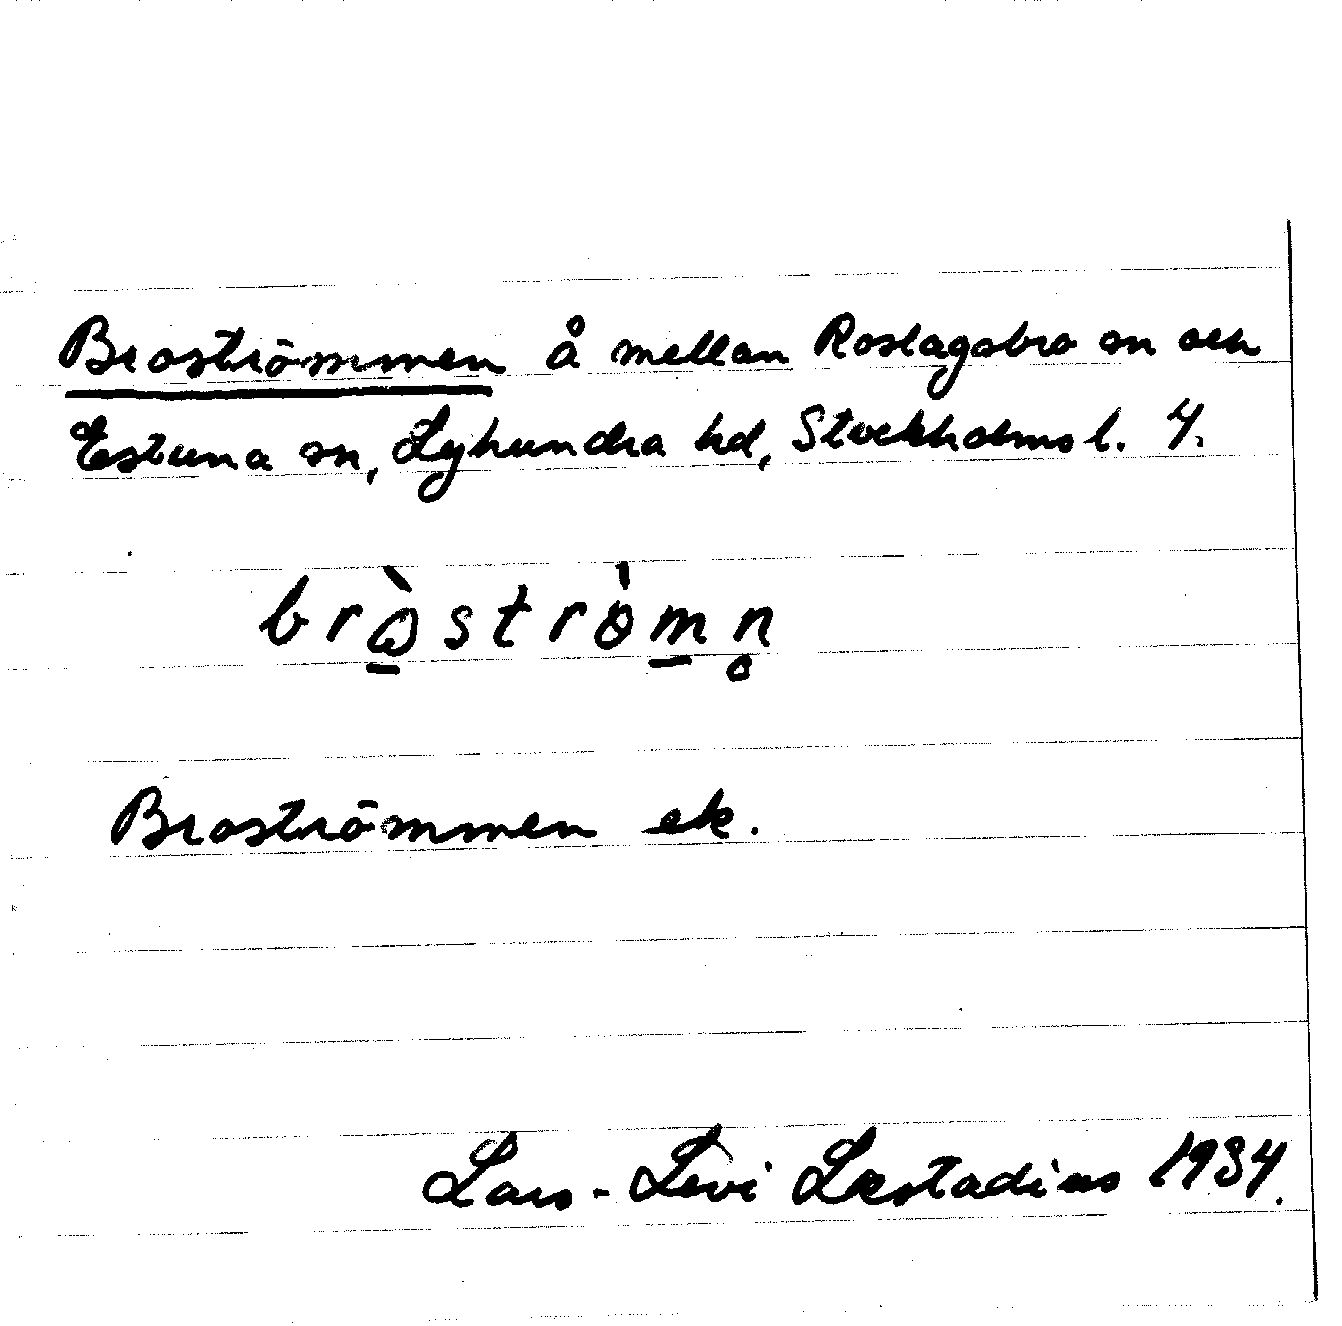 Broströmmen å mellan Roslagsbro sn och
Estuna sn, Lyhundra hd, Stockholms l. 4.
Broströmmen ek.
Lars-Levi Læstadius 1934.